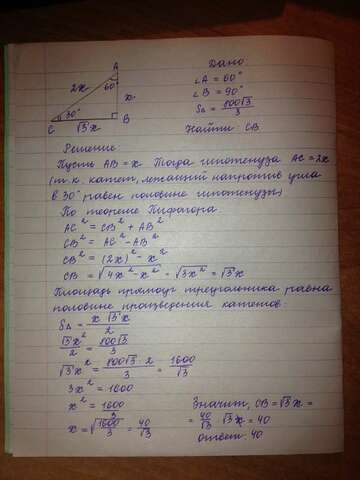 A
2x
60°
x
30°
C
√3x
B
Дано
∠A = 60°
∠B = 90°
S△ = 800√3/3
Найти: CB
Решение
Пусть AB = x. Тогда гипотенуза AC = 2x
(т.к. катет, лежащий напротив угла
в 30° равен половине гипотенузы)
По теореме Пифагора
AC² = CB² + AB²
CB² = AC² - AB²
CB² = (2x)² - x²
CB = √4x² - x² = √3x² = √3x
Площадь прямоуг треугольника равна
половине произведения катетов:
S△ = x √3 x / 2
√3x²/2 = 800√3/3
√3x² = 800√3 · 2/3 = 1600/√3
3x² = 1600
x² = 1600/3
x = √1600/3 = 40/√3
Значит, CB = √3x =
= 40/√3 · √3x = 40
ответ: 40